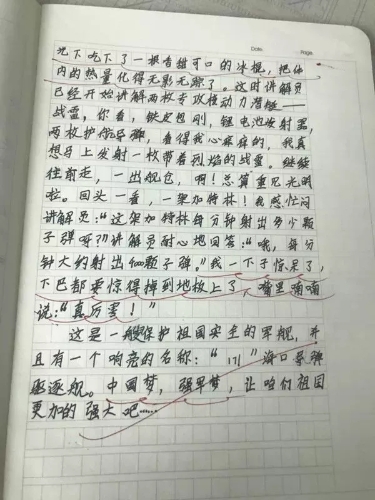 Date    Page
光下吃下了一根香甜可口的冰棍,把体
内的热量化得无影无踪了。这时讲解员
已经开始讲解两枚专攻核动力潜艇——
战雷,你看,铁皮包刚,锂电池发射器,
两枚护航导弹,看得我心麻麻的,我真
想马上发射一枚带着烈焰的战雷。继续
往前走,一出舰仓,啊!总算重见光明
啦。回头一看,一架加特林!我急忙问
讲解员:“这架加特林每分钟射出多少颗
子弹呀?”讲解员耐心地回答:“哦,每分
钟大约射出4000颗子弹。”我一下子惊呆了,
下巴都要惊得掉到地板上了,嘴里喃喃
说:“真厉害!”
这是一艘保护祖国安全的军舰,并
且有一个响亮的名称:“171”海口导弹
驱逐舰。中国梦,强军梦,让咱们祖国
更加的强大吧……